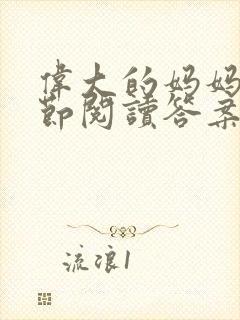 偉大的妈妈
節閱讀答案
流浪1